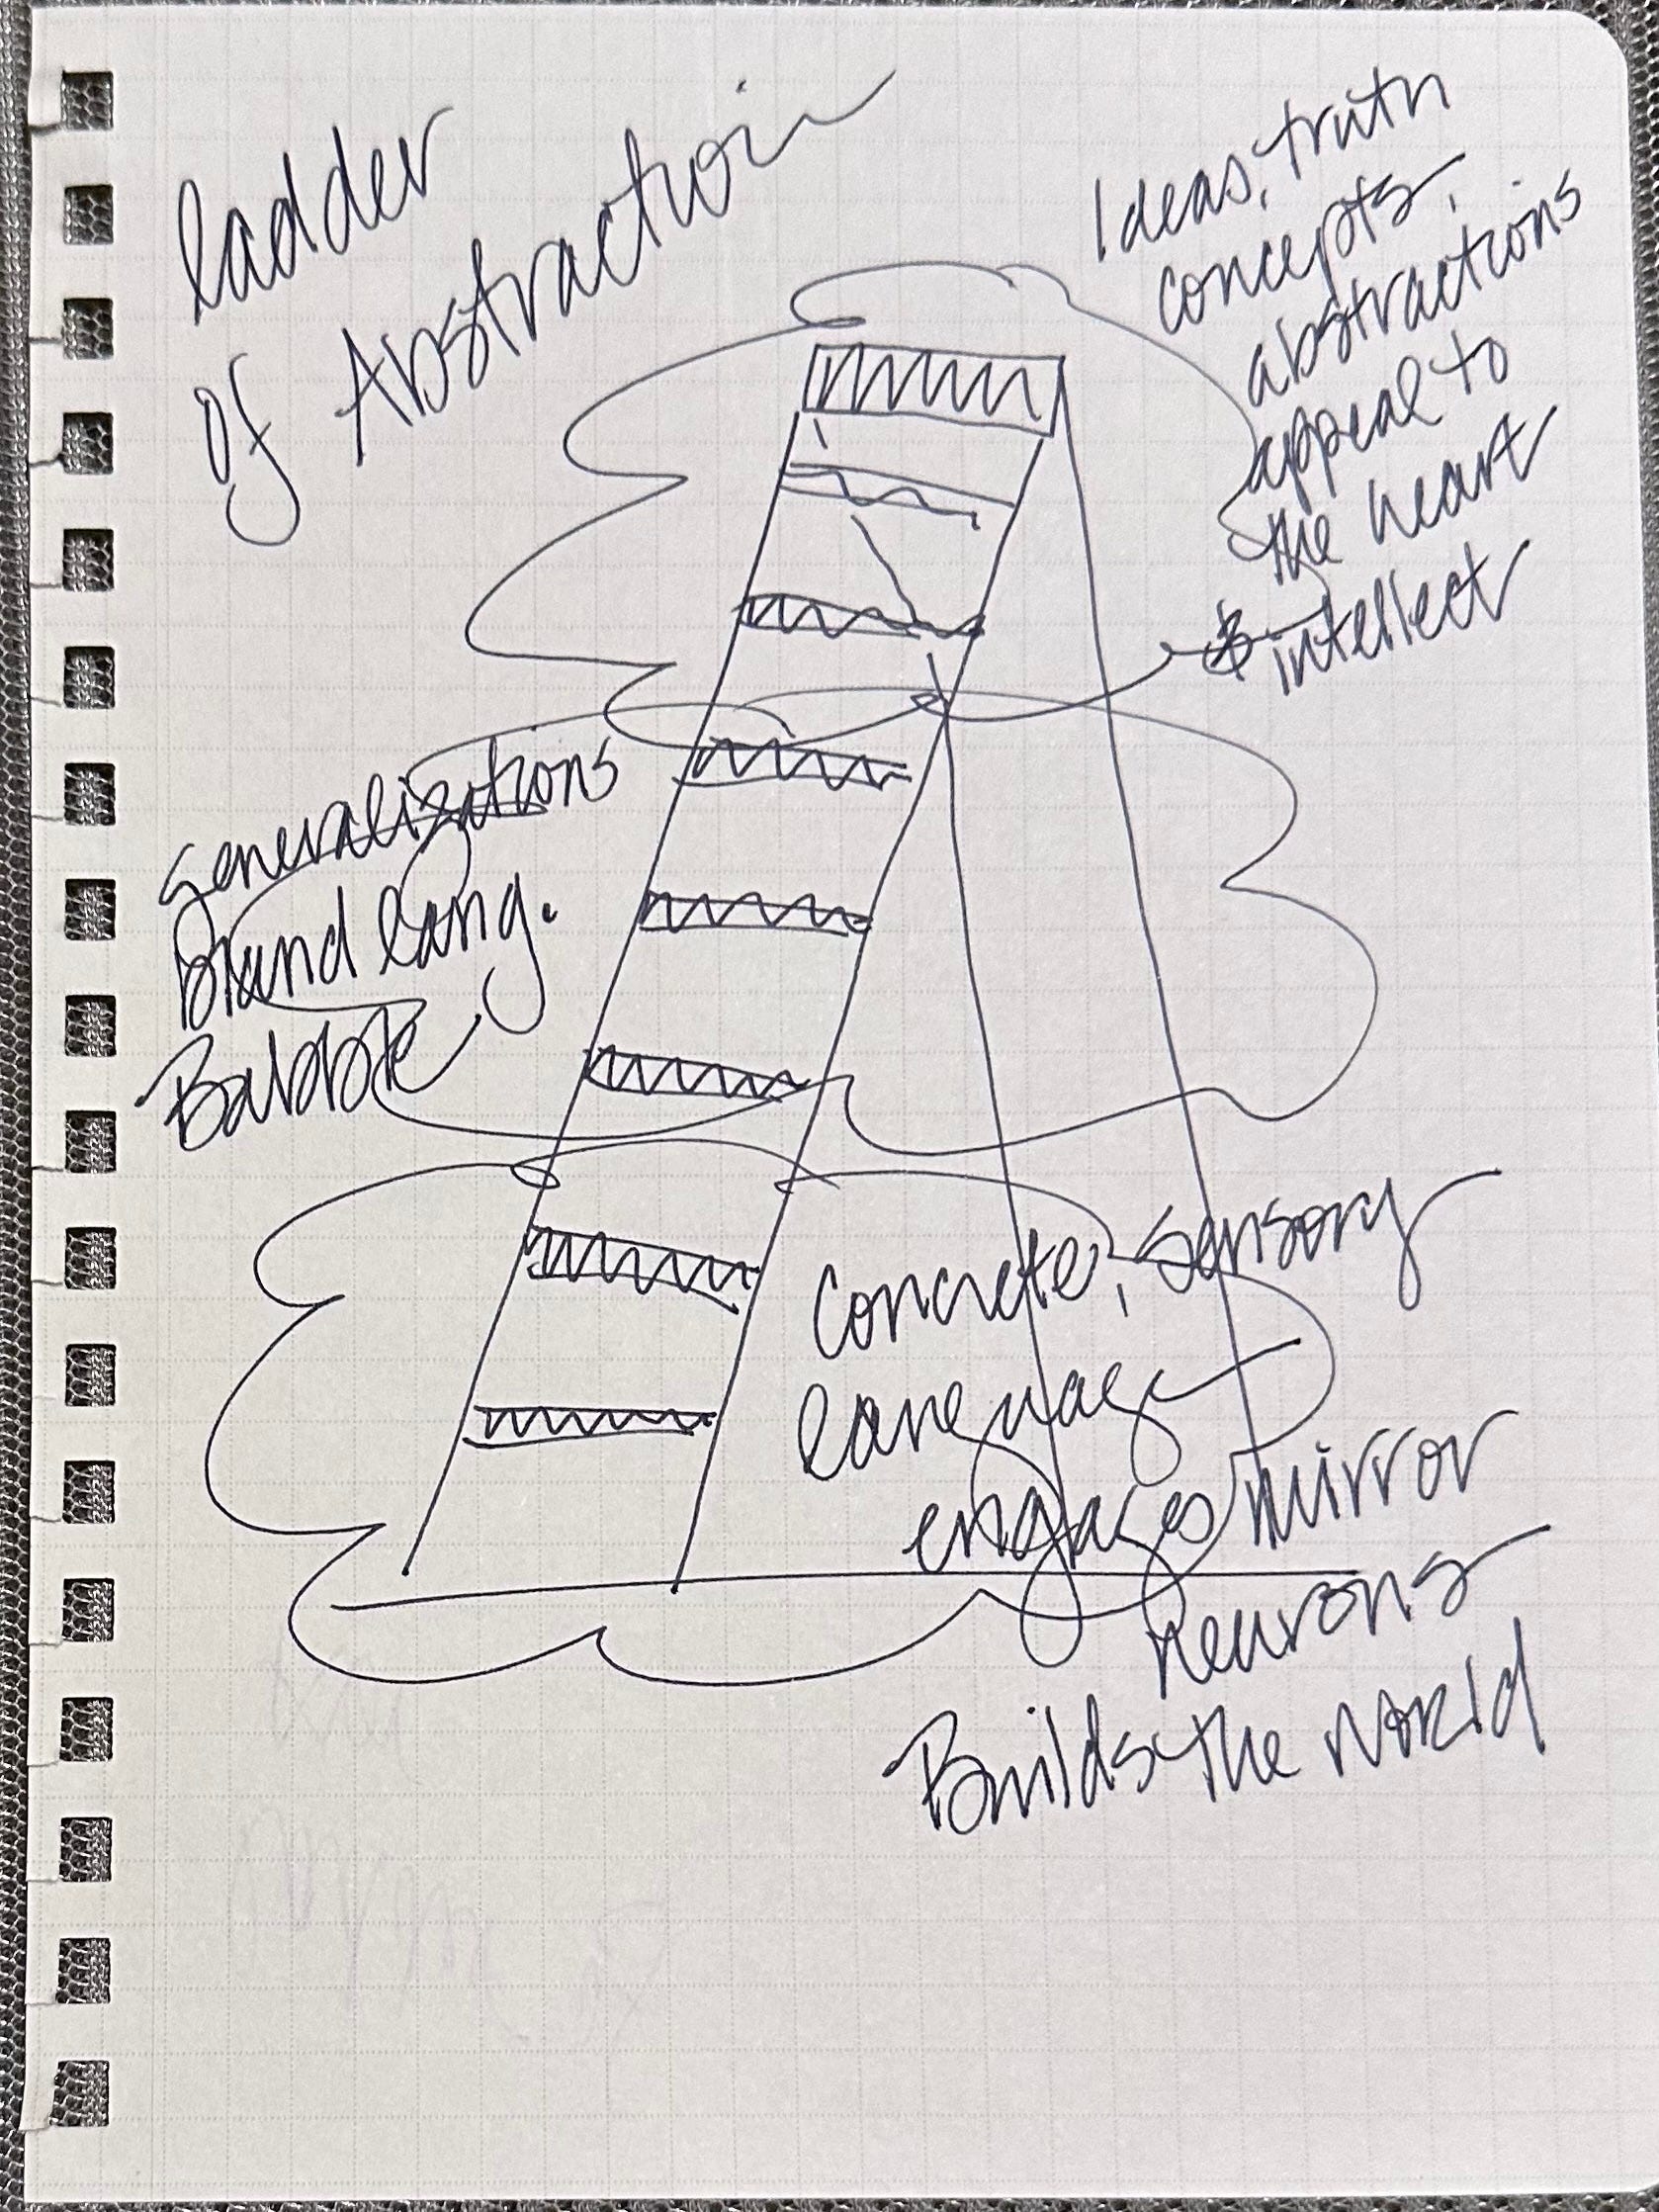 ladder
of Abstraction
Ideas, truth
concepts,
abstractions
appeal to
the heart
& intellect
Generalizations
bland lang.
Babble
Concrete, sensory
language
engages mirror
neurons
Builds the world